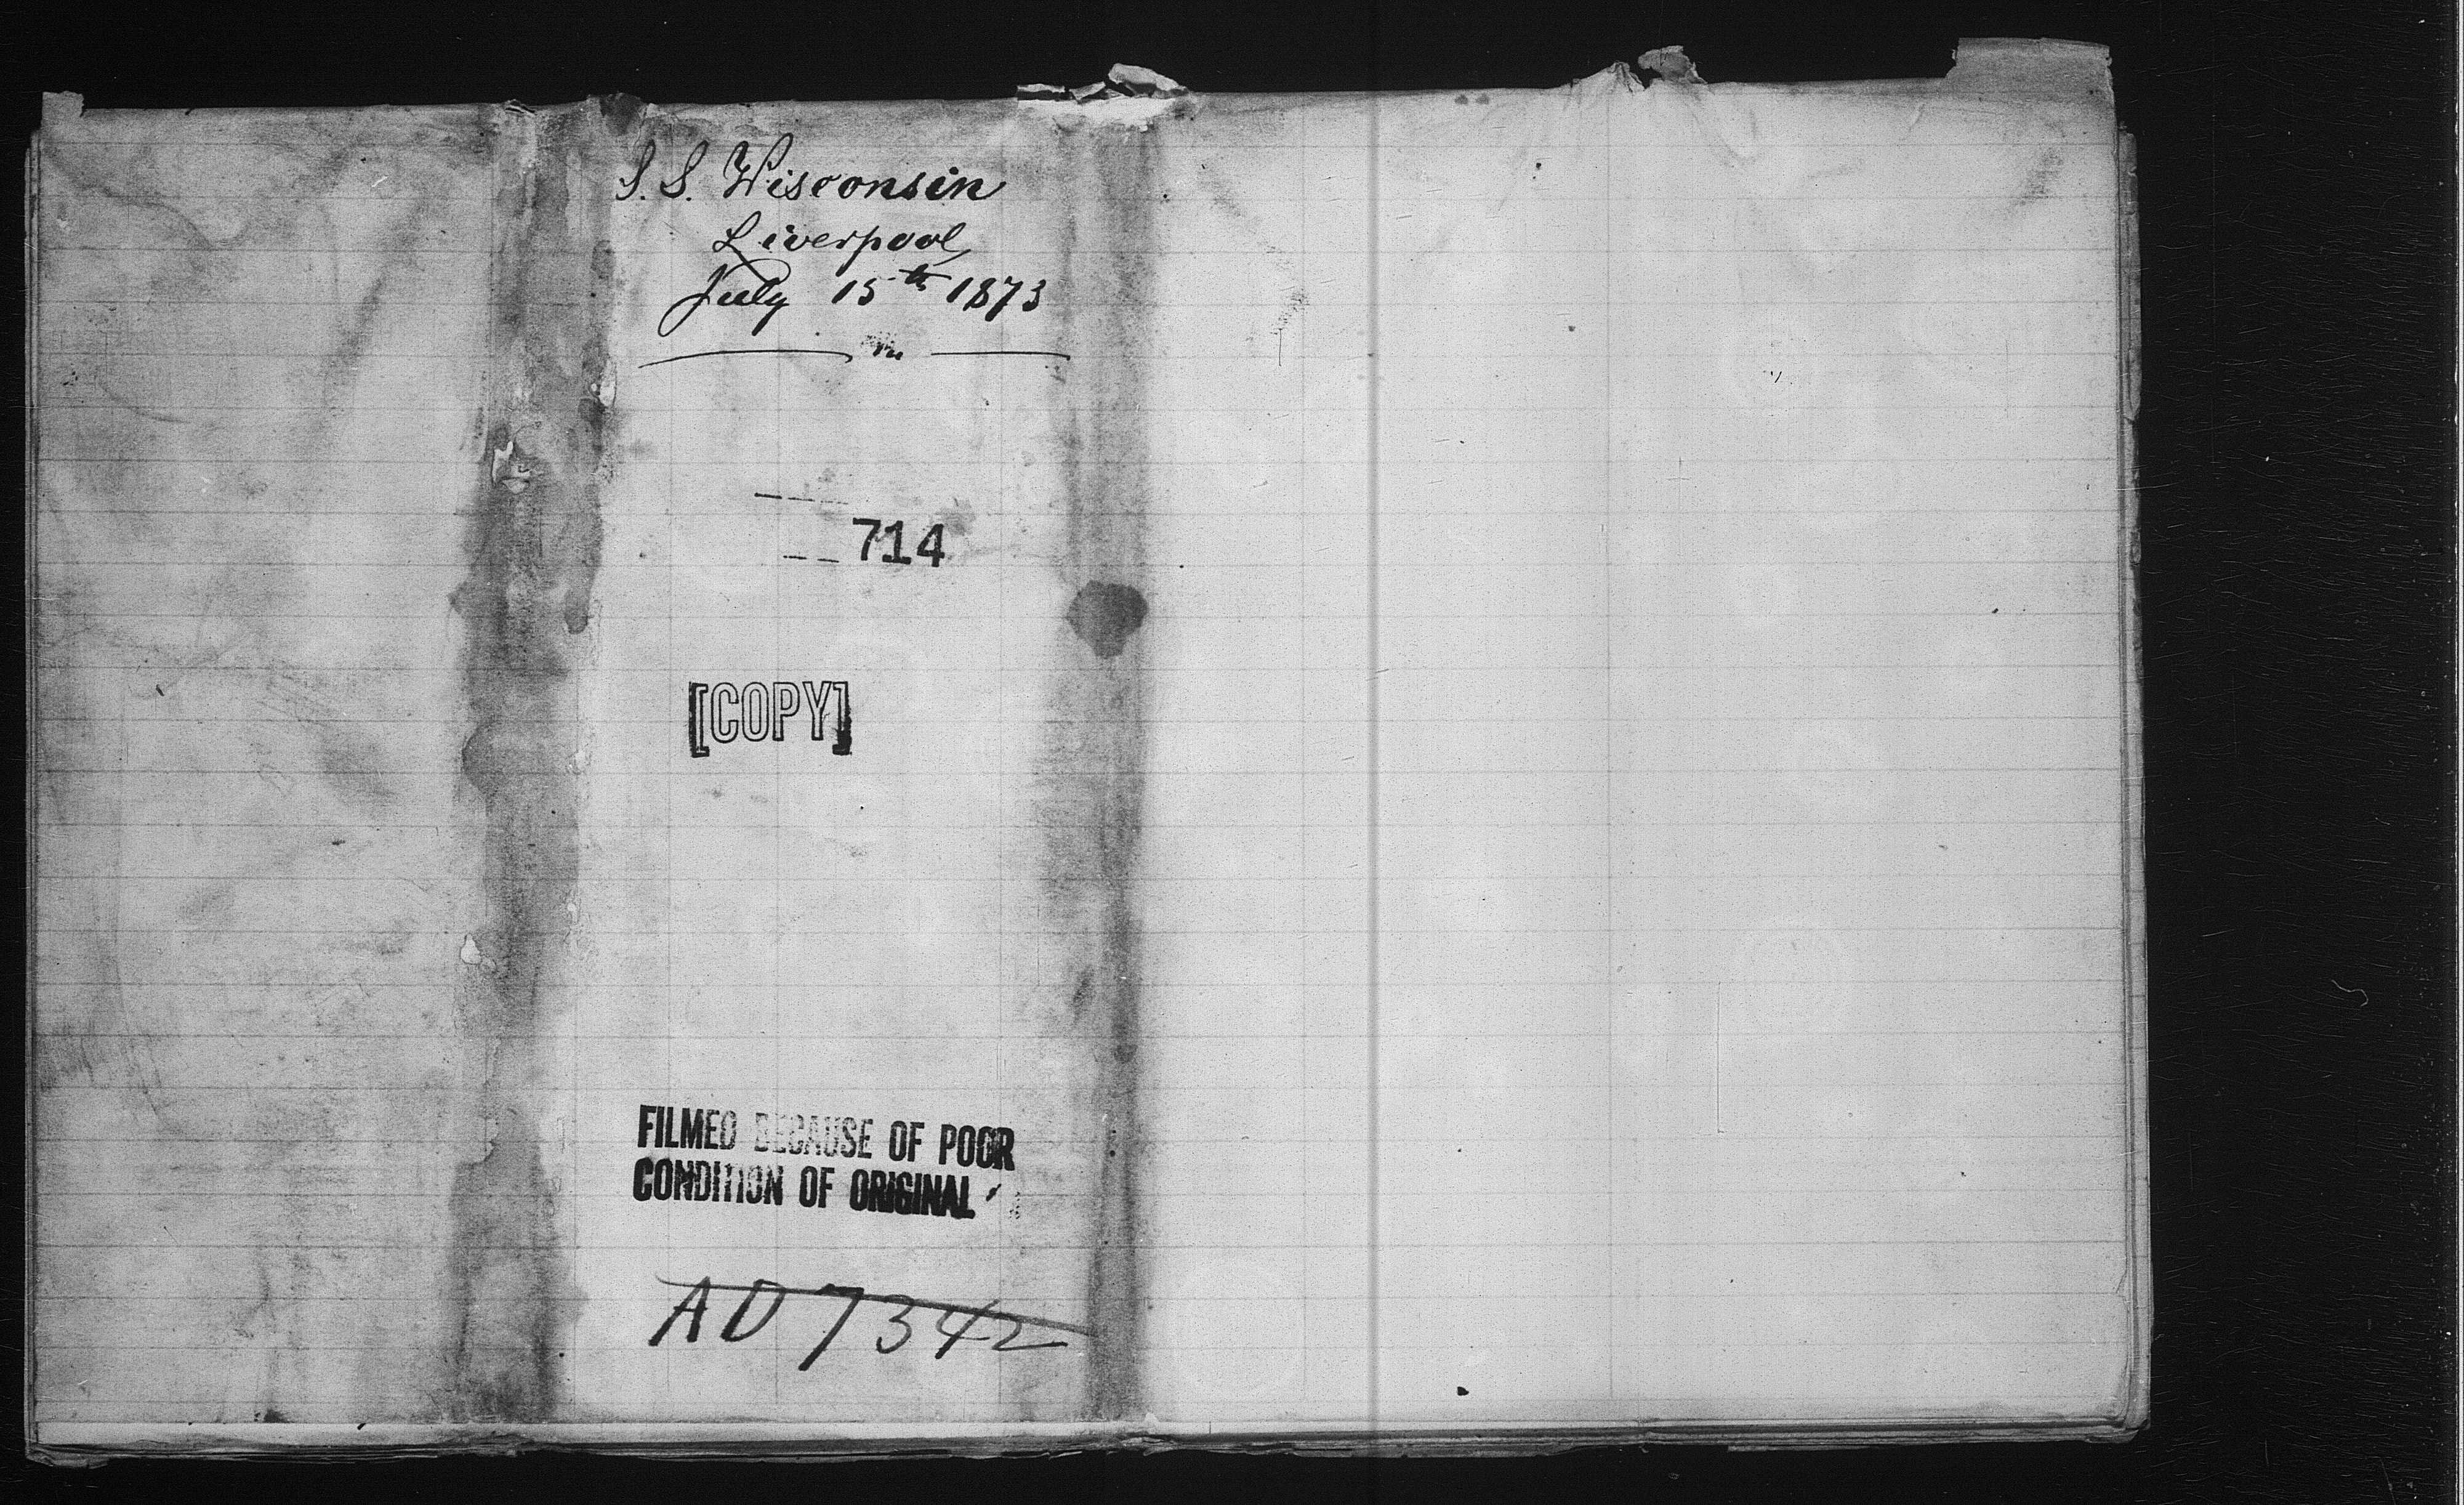 S.S. Wisconsin
Liverpool
July 15th 1873
714
[COPY]
FILMED BECAUSE OF POOR
CONDITION OF ORIGINAL
AD 7342